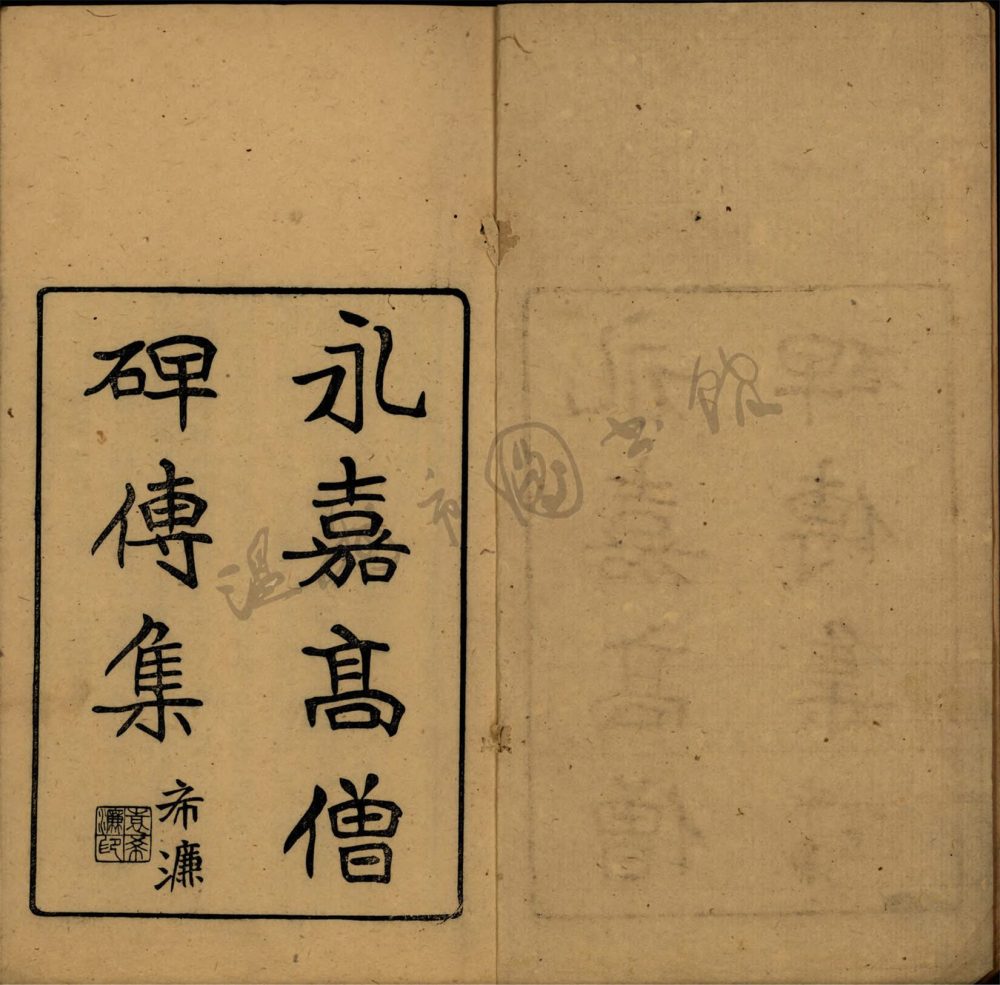 永嘉高僧
碑傳集
希濂
袁希濂印
温州市圖書館